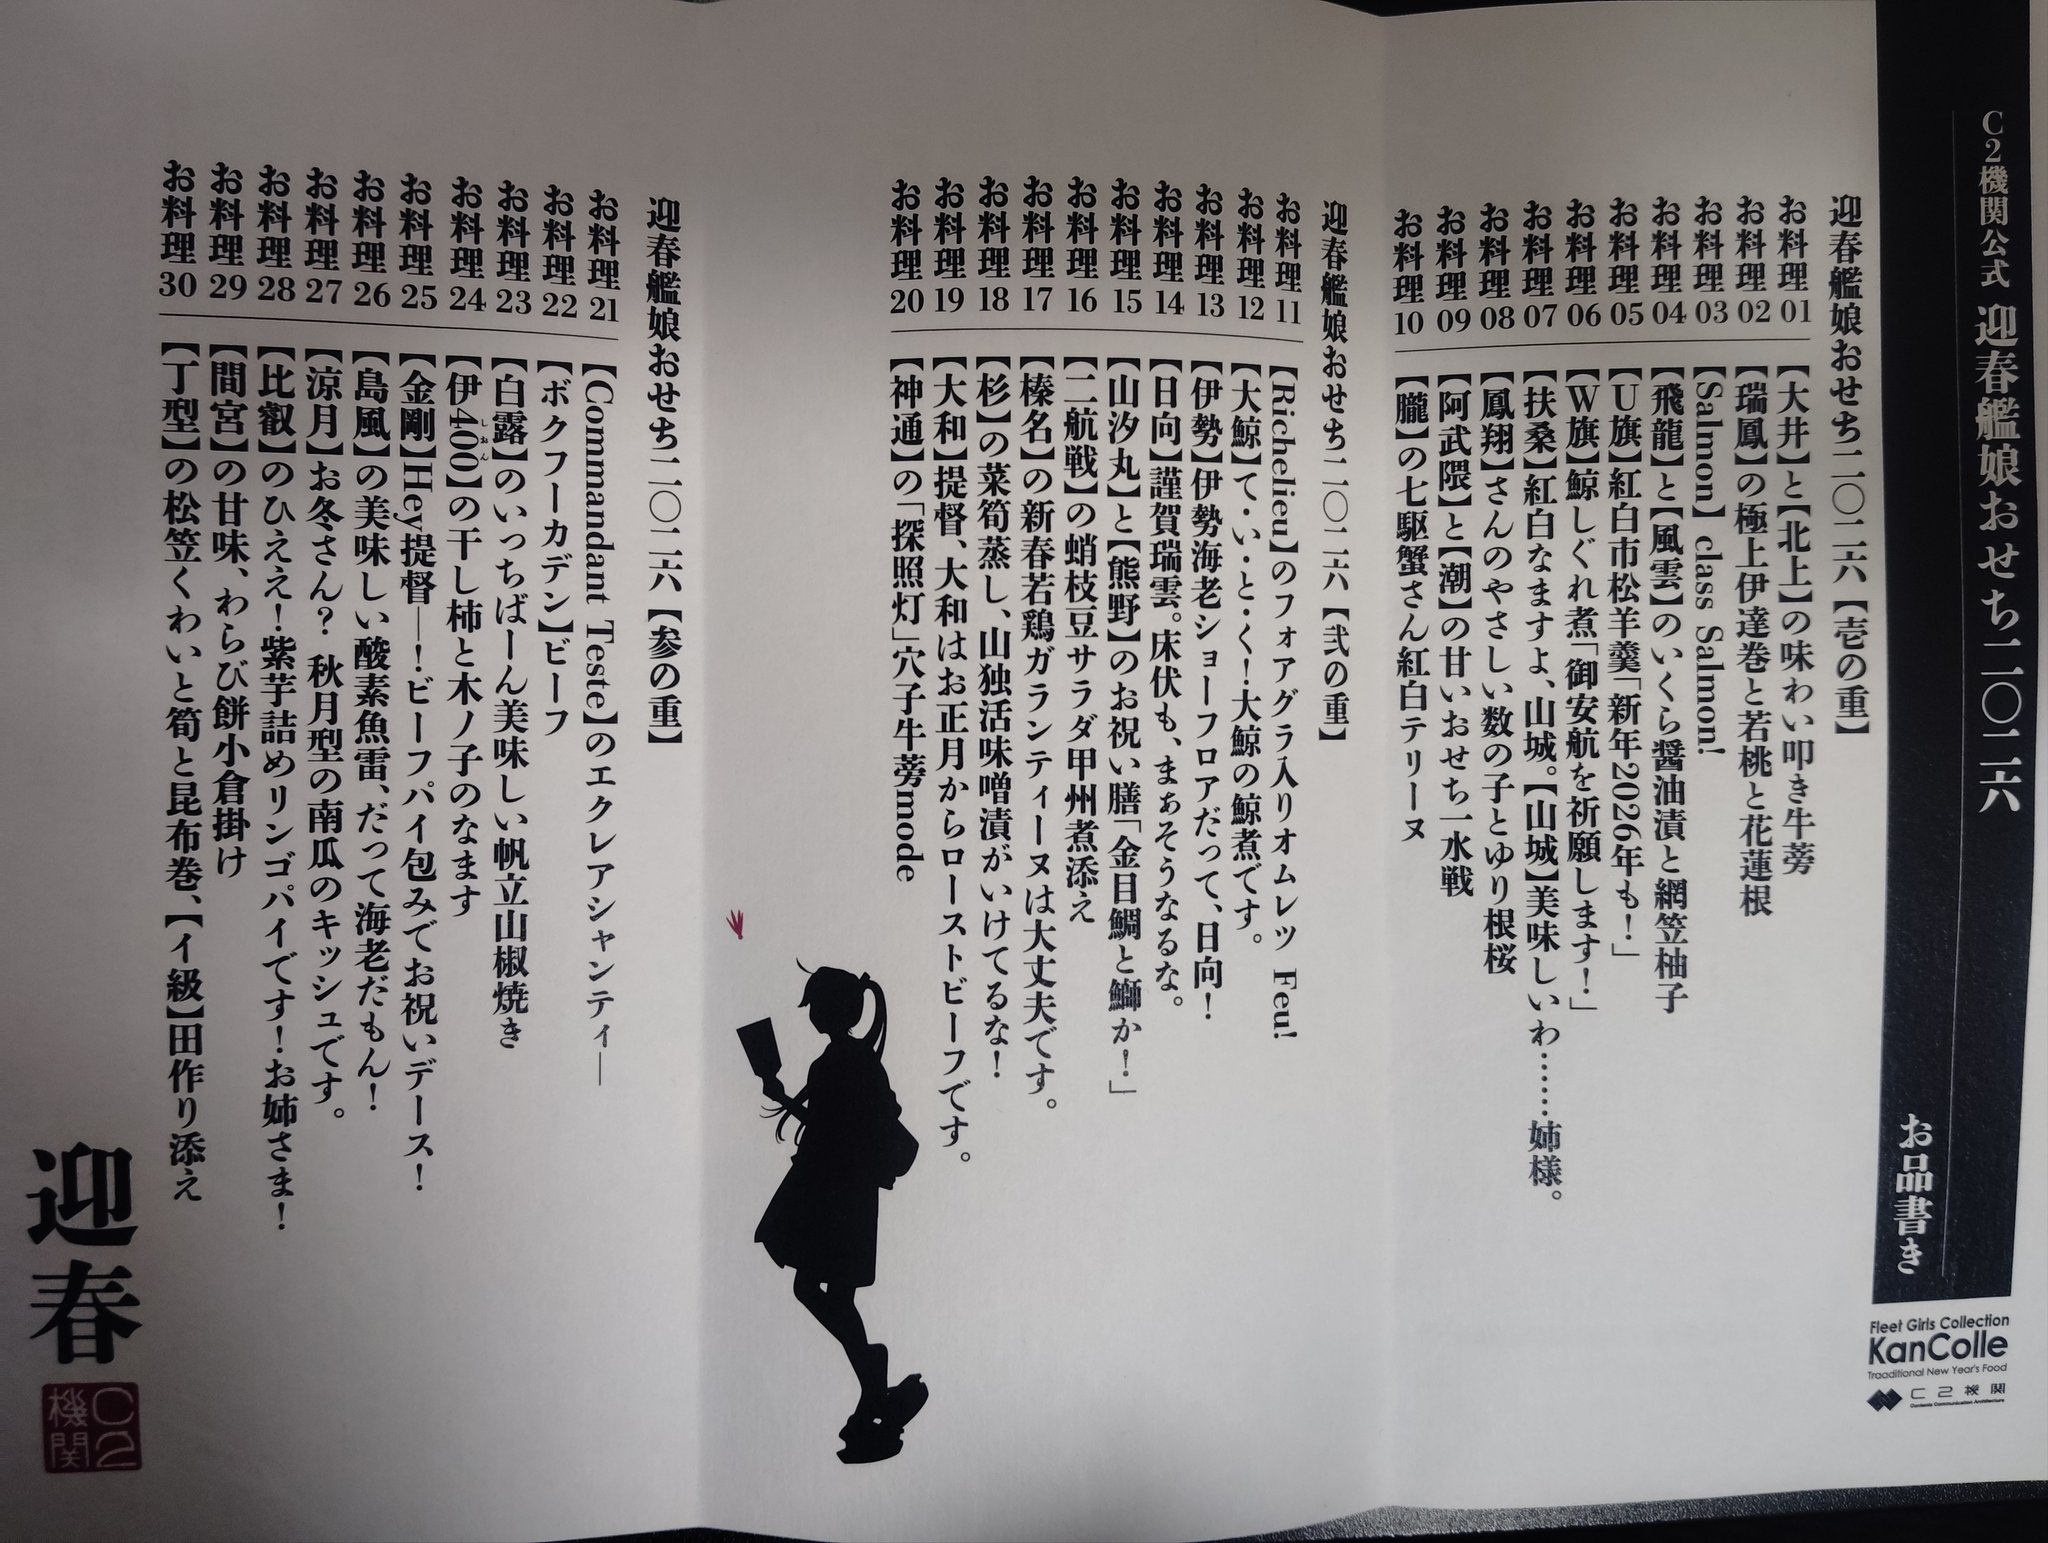 C2機関公式 迎春艦娘おせち二〇二六
お品書き
Fleet Girls Collection
KanColle
Traaditional New Year's Food
C2機関
Contents Communication Architecture
迎春艦娘おせち二〇二六【壱の重】
お料理01 【大井】と【北上】の味わい叩き牛蒡
お料理02 【瑞鳳】の極上伊達巻と若桃と花蓮根
お料理03 【Salmon】class Salmon!
お料理04 【飛龍】と【風雲】のいくら醤油漬と網笠柚子
お料理05 【U旗】紅白市松羊羹「新年2026年も!」
お料理06 【W旗】鯨しぐれ煮「御安航を祈願します!」
お料理07 【扶桑】紅白なますよ、山城。【山城】美味しいわ……姉様。
お料理08 【鳳翔】さんのやさしい数の子とゆり根桜
お料理09 【阿武隈】と【潮】の甘いおせち一水戦
お料理10 【朧】の七駆蟹さん紅白テリーヌ
迎春艦娘おせち二〇二六【弐の重】
お料理11 【Richelieu】のフォアグラ入りオムレツ Feu!
お料理12 【大鯨】て・い・と・く!大鯨の鯨煮です。
お料理13 【伊勢】伊勢海老ショーフロアだって、日向!
お料理14 【日向】謹賀瑞雲。床伏も、まぁそうなるな。
お料理15 【山汐丸】と【熊野】のお祝い膳「金目鯛と鰤か!」
お料理16 【二航戦】の蛸枝豆サラダ甲州煮添え
お料理17 【榛名】の新春若鶏ガランティーヌは大丈夫です。
お料理18 【杉】の菜筍蒸し、山独活味噌漬がいけてるな!
お料理19 【大和】提督、大和はお正月からローストビーフです。
お料理20 【神通】の「探照灯」穴子牛蒡mode
迎春艦娘おせち二〇二六【参の重】
お料理21 【Commandant Teste】のエクレアシャンティ―
お料理22 【ボクフーカデン】ビーフ
お料理23 【白露】のいっちばーん美味しい帆立山椒焼き
お料理24 【伊400】の干し柿と木ノ子のなます
しおん
お料理25 【金剛】Hey提督―!ビーフパイ包みでお祝いデース!
お料理26 【島風】の美味しい酸素魚雷、だって海老だもん!
お料理27 【涼月】お冬さん? 秋月型の南瓜のキッシュです。
お料理28 【比叡】のひええ!紫芋詰めリンゴパイです!お姉さま!
お料理29 【間宮】の甘味、わらび餅小倉掛け
お料理30 【丁型】の松笠くわいと筍と昆布巻、【イ級】田作り添え
迎春
C2機関